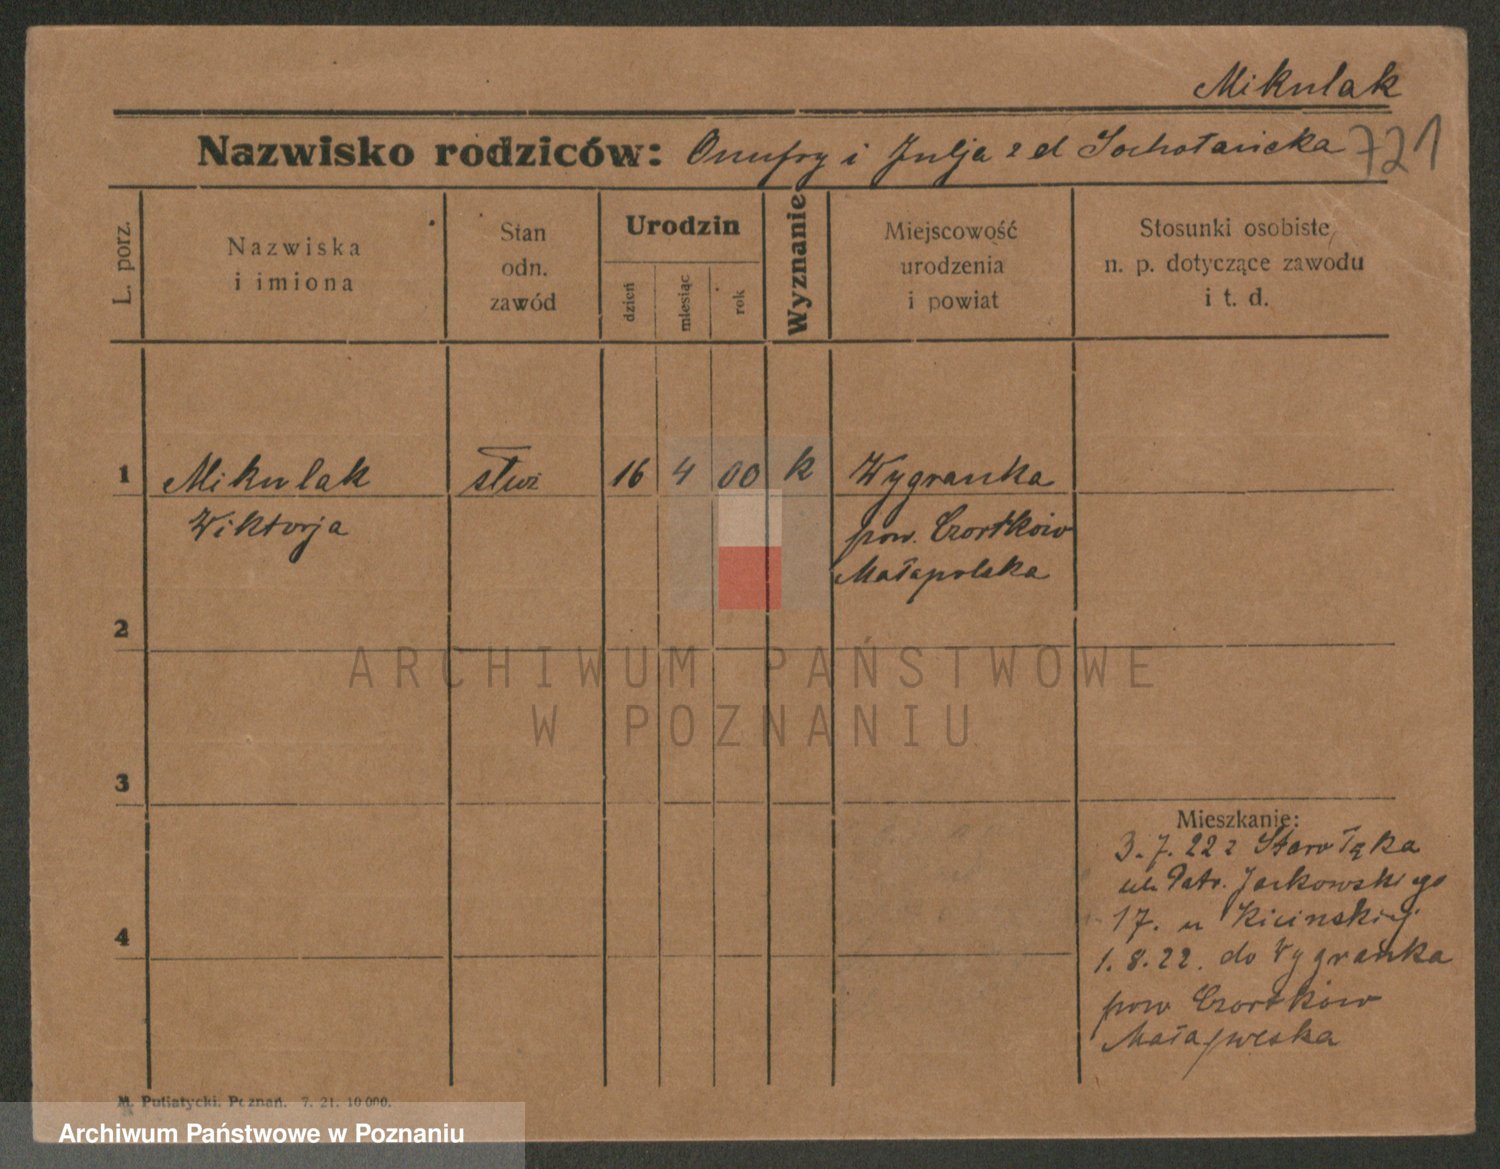 Mikulak
Nazwisko rodziców: Onufry i Julja z d Sochotanicka 721
L. porz.
Nazwiska
i imiona
Stan
odn.
zawód
Urodzin
dzień
miesiąc
rok
Wyznanie
Miejscowość
urodzenia
i powiat
Stosunki osobiste,
n. p. dotyczące zawodu
i t. d.
1 Mikulak służ 16 4 00 k Wygranka
Wiktorja pow. Czortków
Małapolska
2
ARCHIWUM PAŃSTWOWE
W POZNANIU
3
Mieszkanie:
3.7.22 z Starołęka
ul. Patr. Jackowskiego
17. u Kicinskiej
4
1.8.22. do Wygranka
pow Czortków
Małapolska
M. Putiatycki, Poznań. 7. 21. 10 000.
Archiwum Państwowe w Poznaniu